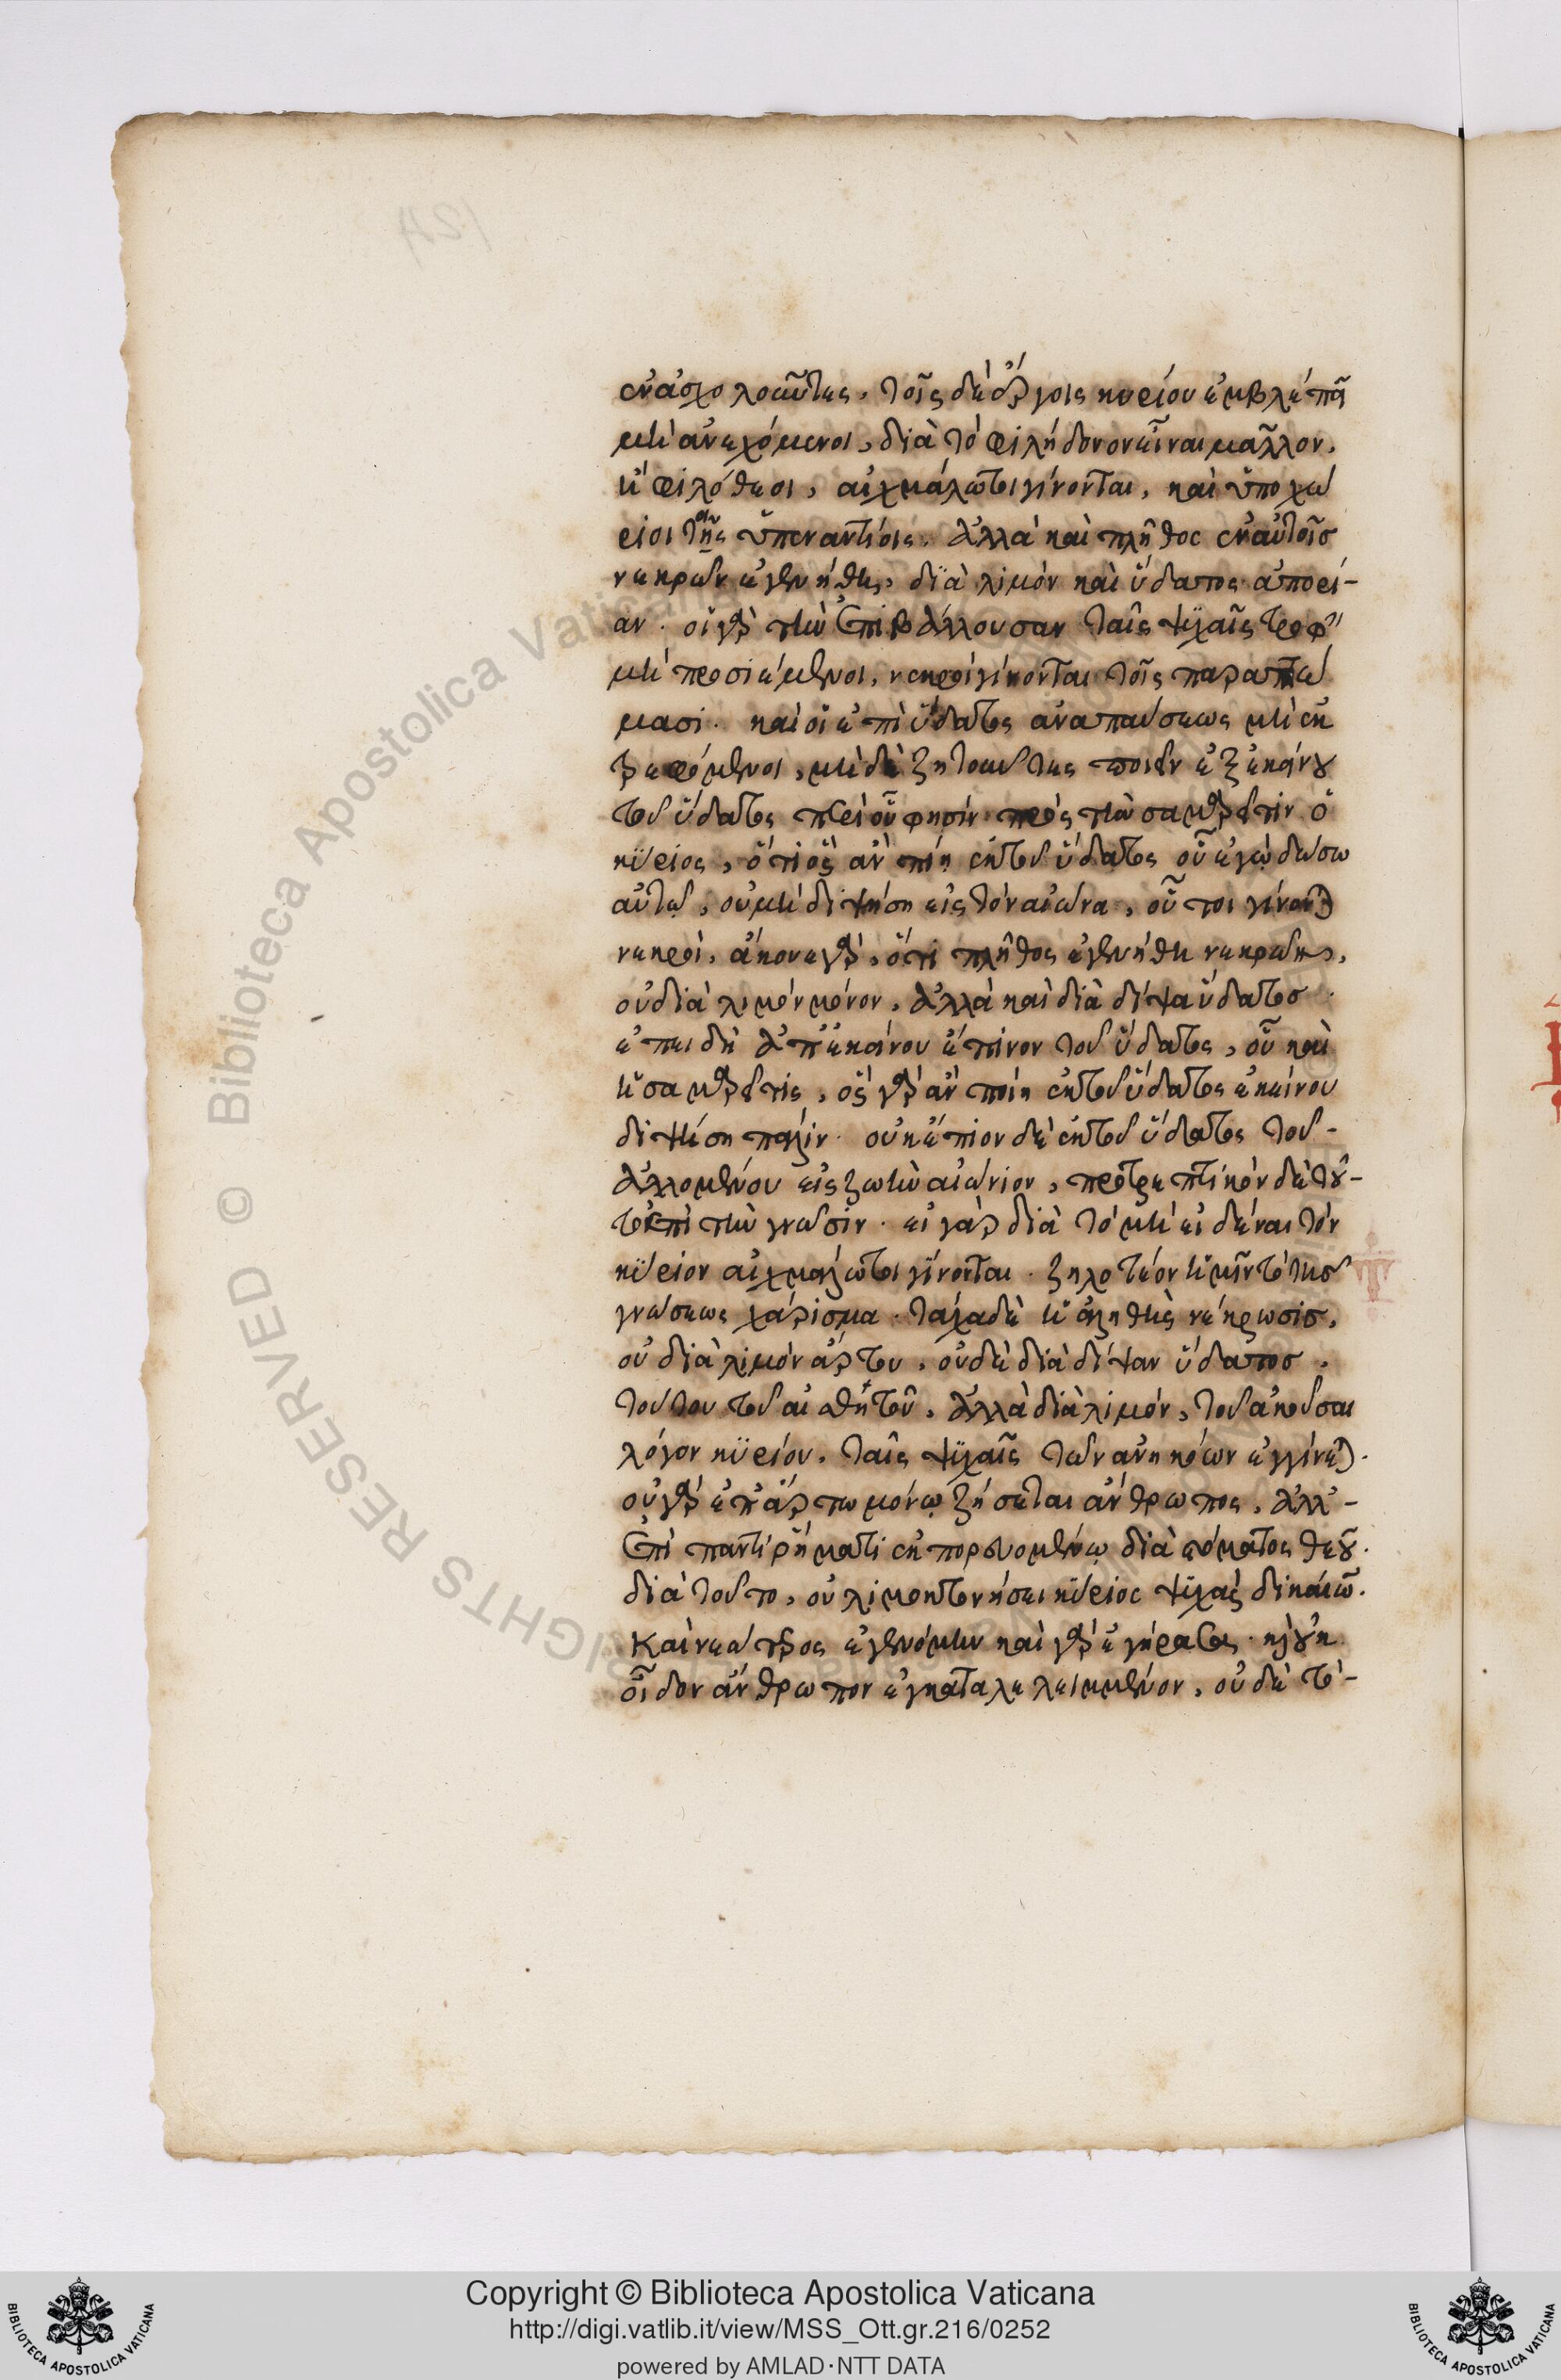 ἐνασχολοῦντες, τοῖς δὲ ἔργοις κυρίου ἐμβλέπειν
μὴ ἀνεχόμενοι, διὰ τὸ φιλήδονον εἶναι μᾶλλον,
ἢ φιλόθεοι, αἰχμάλωτοι γίνονται, καὶ ὑποχω
ριοι τοῖς ὑπεναντίοις. ἀλλὰ καὶ πλῆθος ἐν αὐτοῖς
νεκρῶν ἐγενήθη, διὰ λιμὸν καὶ ὕδατος ἀπορί-
αν. οἱ γὰρ τὴν ἐπιβάλλουσαν ταῖς ψυχαῖς τροφὴν
μὴ προσιέμενοι, νεκροὶ γίνονται τοῖς παραπτώ
μασι. καὶ οἱ ἐπὶ ὕδατος ἀναπαύσεως μὴ ἐκ
τρεφόμενοι, μὴ δὲ ζητοῦντες πιεῖν ἐξ ἐκείνου
τοῦ ὕδατος περὶ οὗ φησὶν πρὸς τὴν σαμαρεῖτιν ὁ
κύριος, ὅτι ὃς ἂν πίῃ ἐκ τοῦ ὕδατος οὗ ἐγὼ δώσω
αὐτῷ, οὐ μὴ διψήσῃ εἰς τὸν αἰῶνα, οὗτοι γίνονται
νεκροὶ, ἄκουε γὰρ, ὅτι πλῆθος ἐγενήθη νεκρῶν,
οὐ διὰ λιμὸν μόνον, ἀλλὰ καὶ διὰ δίψα ὕδατος.
ἐπειδὴ ἀπ' ἐκείνου ἔπινον τοῦ ὕδατος, οὗ καὶ
ἡ σαμαρεῖτις, ὃς γὰρ ἂν πίῃ ἐκ τοῦ ὕδατος ἐκείνου
διψήσῃ πάλιν. οὐκ ἔπιον δὲ ἐκ τοῦ ὕδατος τοῦ-
ἀλλομένου εἰς ζωὴν αἰώνιον, προτρεπτικὸν δὲ τοῦ-
το ἐπὶ τὴν γνῶσιν. εἰ γὰρ διὰ τὸ μὴ εἰδέναι τὸν
κύριον αἰχμάλωτοι γίνονται. ζηλοτέον ἡμῖν τὸ τῆς
γνώσεως χάρισμα. τάχα δὲ ἡ ἀληθὴς νέκρωσις,
οὐ διὰ λιμὸν ἄρτου, οὐδὲ διὰ δίψαν ὕδατος.
τούτου τοῦ αἰσθητοῦ, ἀλλὰ διὰ λιμὸν, τοῦ ἀκοῦσαι
λόγον κυρίου, ταῖς ψυχαῖς τῶν ἀνηκόων ἐγγίνεται.
οὐ γὰρ ἐπ' ἄρτῳ μόνῳ ζήσεται ἄνθρωπος, ἀλλ'-
ἐπὶ παντὶ ῥήματι ἐκπορευομένῳ διὰ στόματος θεοῦ.
διὰ τοῦτο, οὐ λιμοκτονήσει κύριος ψυχὰς δικαίων.
Καὶ νεώτερος ἐγενόμην καὶ γὰρ ἐγήρασα. κ' οὐκ
εἶδον ἄνθρωπον ἐγκαταλελειμμένον, οὐδὲ τὸ-
Copyright © Biblioteca Apostolica Vaticana
http://digi.vatlib.it/view/MSS_Ott.gr.216/0252
powered by AMLAD·NTT DATA